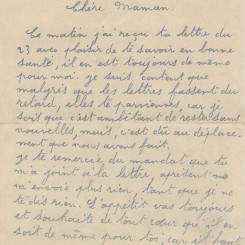 Chère Maman.
Ce matin j'ai reçu ta lettre du
23 avec plaisir de te savoir en bonne
santé, il en est toujours de même
pour moi. je suis content que
malgrès que les lettres passent du
retard, elles te parviennes, car je
sais que c'est embêtant de rester sans
nouvelles, mais, c'est dû au déplace-
ment que nous avons fait.
je te remercie du mandat que tu
m'a joint à la lettre, aprèsent ne
m'envoie plus rien, tant que je ne
te dis rien. L'appétit vas toujours
et souhaite de tout cœur que il en
soit de même pour toi, car il faut